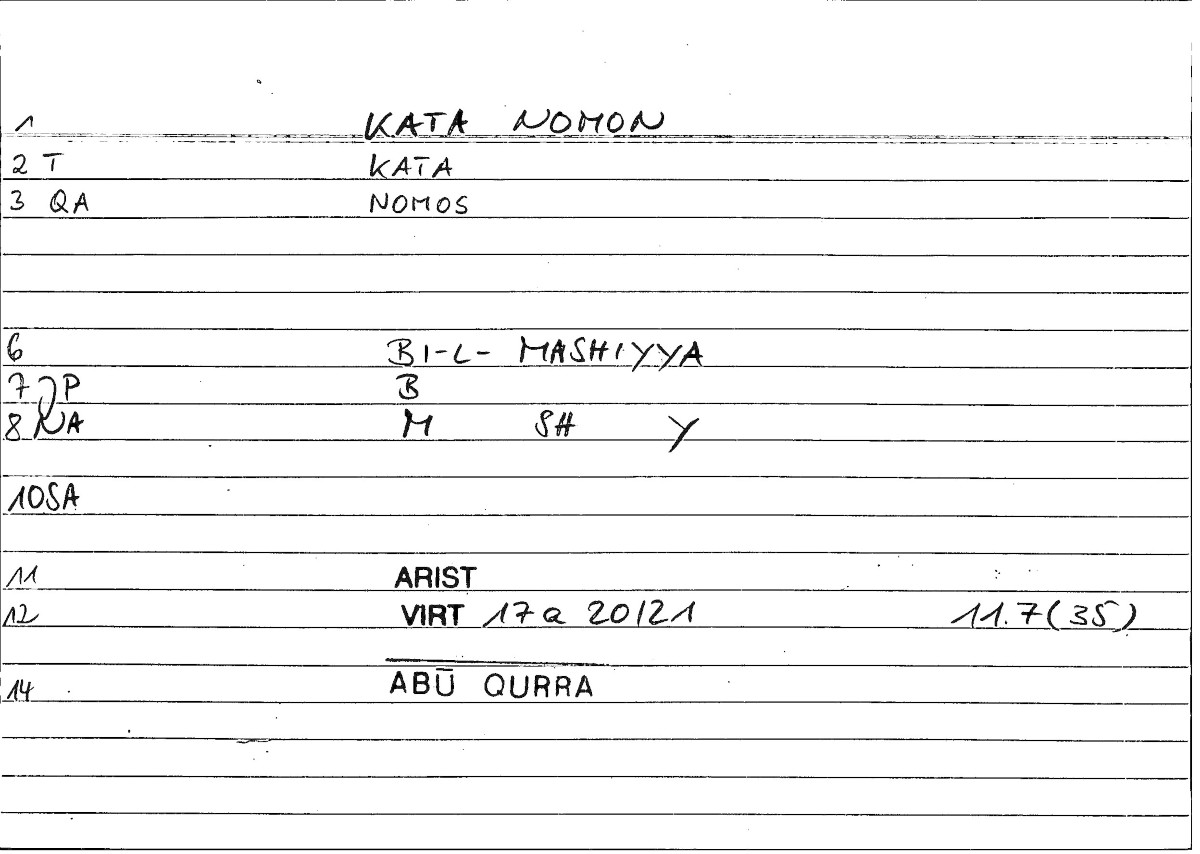 1 KATA NOMON
2 T KATA
3 QA NOMOS
6 BI-L- MASHIYYA
7 P B
8 NA M SH Y
10SA
11 ARIST
12 VIRT 17a 20/21 11.7(35)
14 ABŪ QURRA